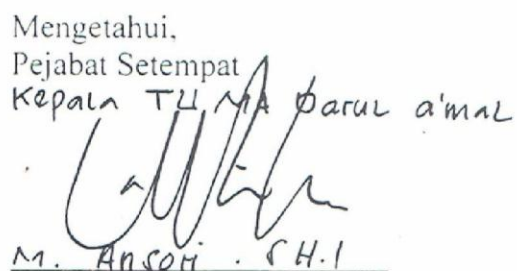 Mengetahui,
Pejabat Setempat
Kepala TU MA Darul a'mal
M. Ansori . S.H.I